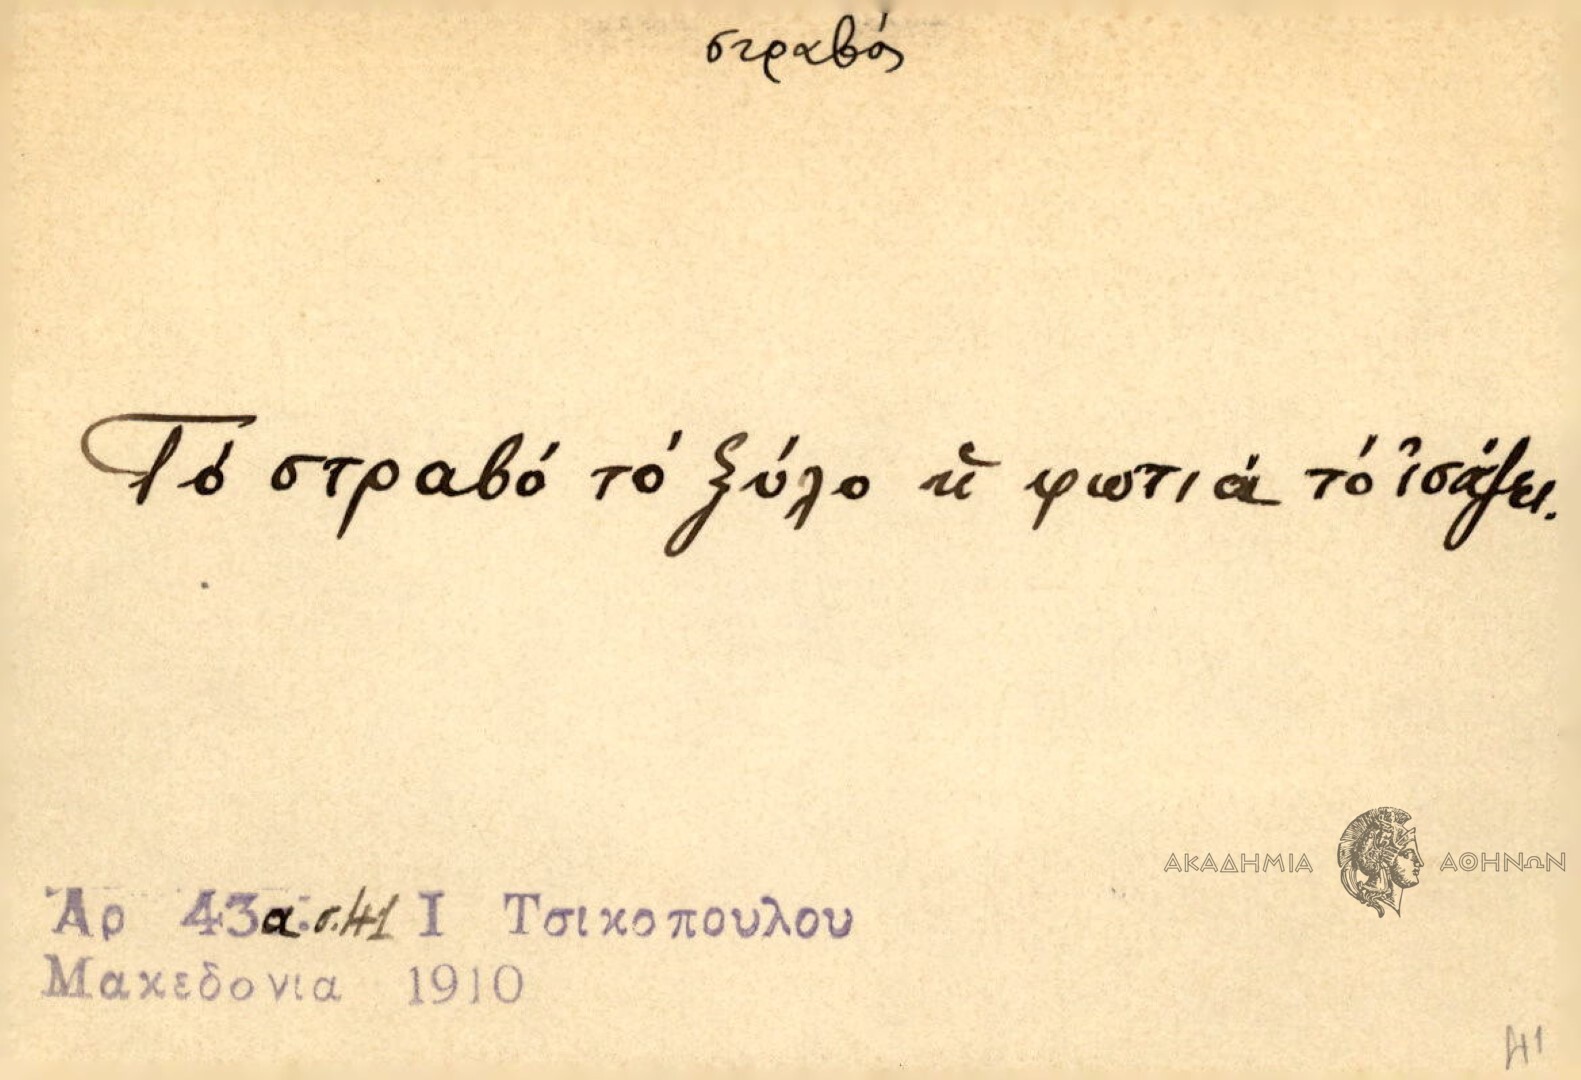 στραβός
Τό στραβό τό ξύλο ἡ φωτιά τό ἰσάζει.
ΑΚΑΔΗΜΙΑ ΑΘΗΝΩΝ
Ἀρ 43α σ.41 Ι Τσικοπουλου
Μακεδονια 1910
41